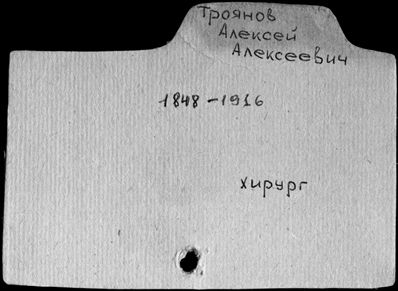 Троянов
Алексей
Алексеевич
1848-1916
хирург